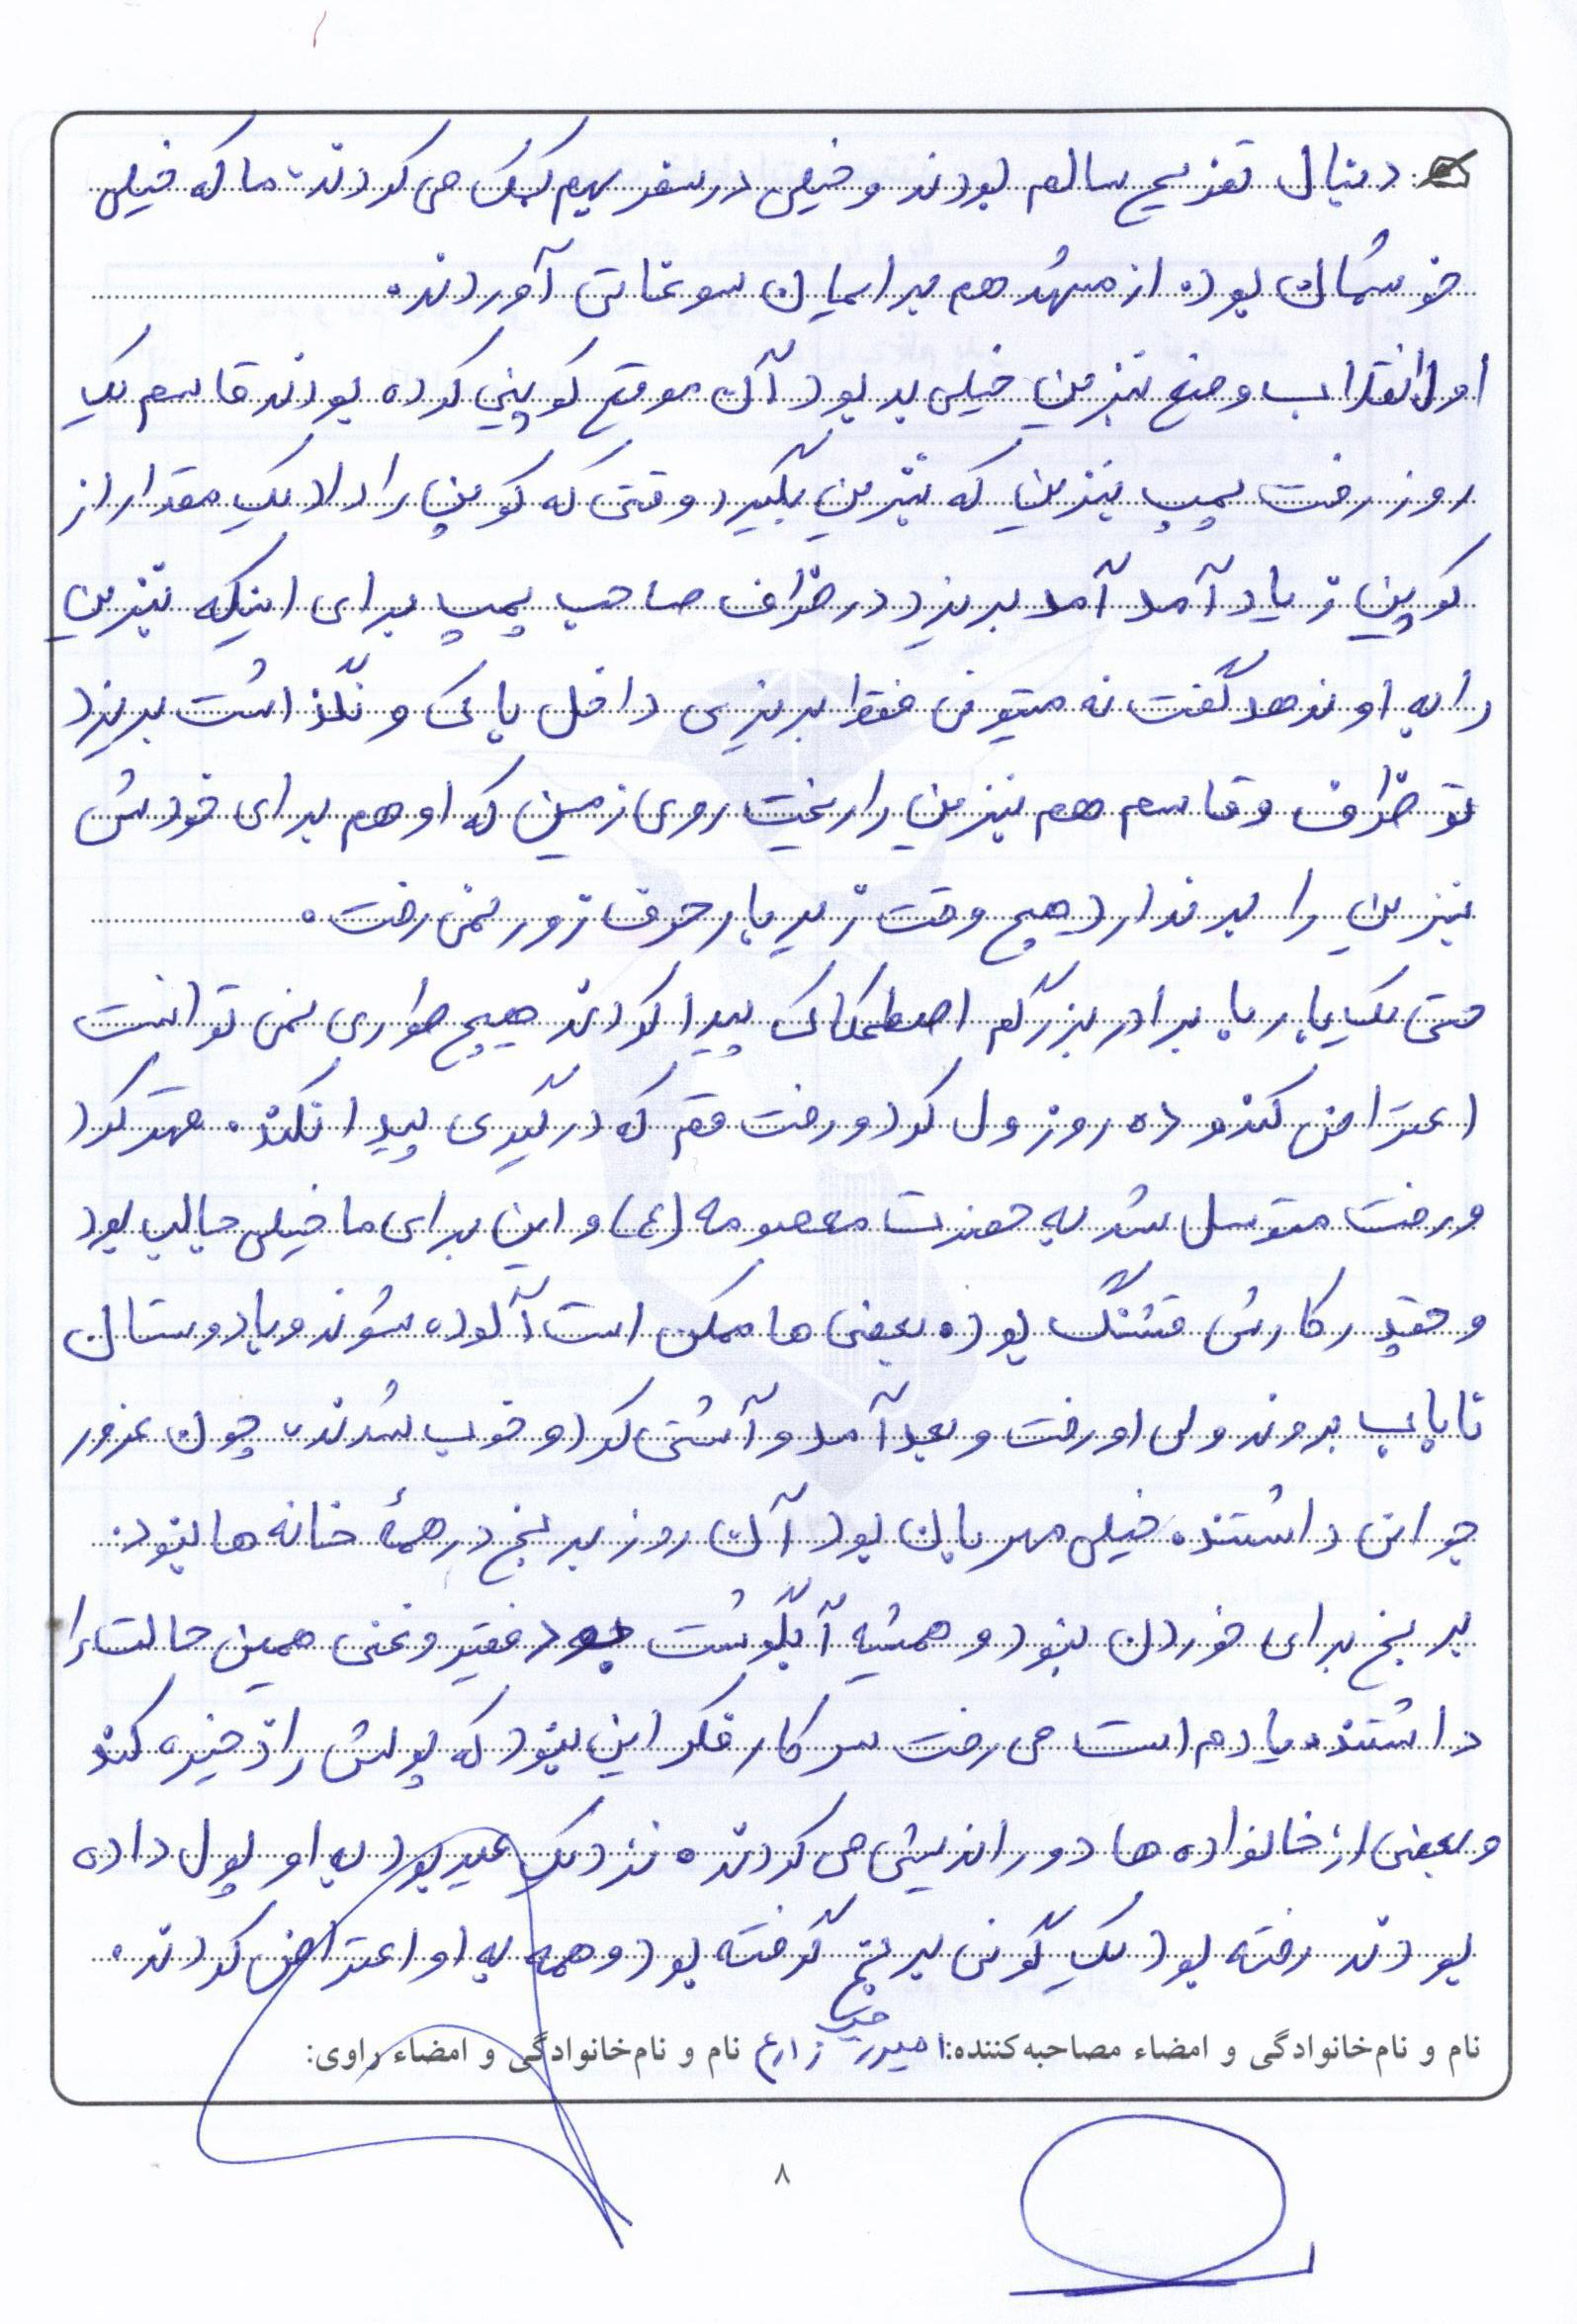 دنبال تفریح سالم بودند و خیلی در سفر بهم کمک می کردند، ما که خیلی
خوشمان بود. از مشهد هم برایمان سوغاتی آوردند.
اول انقلاب وضع بنزین خیلی بد بود آن موقع کوپنی کرده بودند قاسم یک
روز رفت پمپ بنزین که بنزین بگیرد وقتی که کوپن را داد یک مقدار از
کوپن زیاد آمد آمد بریزد در ظرف صاحب پمپ برای اینکه بنزین
را به او ندهد گفت نه میتونی فقط بریزی داخل باک و نگذاشت بریزد
تو ظرف و قاسم هم بنزین را ریخت روی زمین که او هم برای خودش
بنزین را بر ندارد هیچ وقت زیر بار حرف زور نمی رفت.
حتی یک بار با برادر بزرگم اصطحکاک پیدا کردند هیچ طوری نمی توانست
اعتراض کند و ده روز ول کرد و رفت قم که درگیری پیدا نکند. قهر کرد
و رفت متوسل شد به حضرت معصومه (ع) و این برای ما خیلی جالب بود
و چقدر کارش قشنگ بود. بعضی ها ممکن است آلوده شوند و با دوستان
ناباب بروند ولی او رفت و بعد آمد و آشتی کرد و خوب شدند، چون غرور
جوانی داشتند. خیلی مهربان بود آن روز برنج در همهٔ خانه ها نبود.
برنج برای خوردن نبود و همیشه آبگوشت بود فقیر و غنی همین حالت را
داشتند. یادم است می رفت سر کار فکر این نبود که پولش را ذخیره کند
و بعضی از خانواده ها دوراندیشی می کردند. نزدیک عید بود به او پول داده
بودند رفته بود یک گونی برنج گرفته بود و همه به او اعتراض کردند.
نام و نام‌خانوادگی و امضاء مصاحبه‌کننده: زارع نام و نام‌خانوادگی و امضاء راوی:
۸